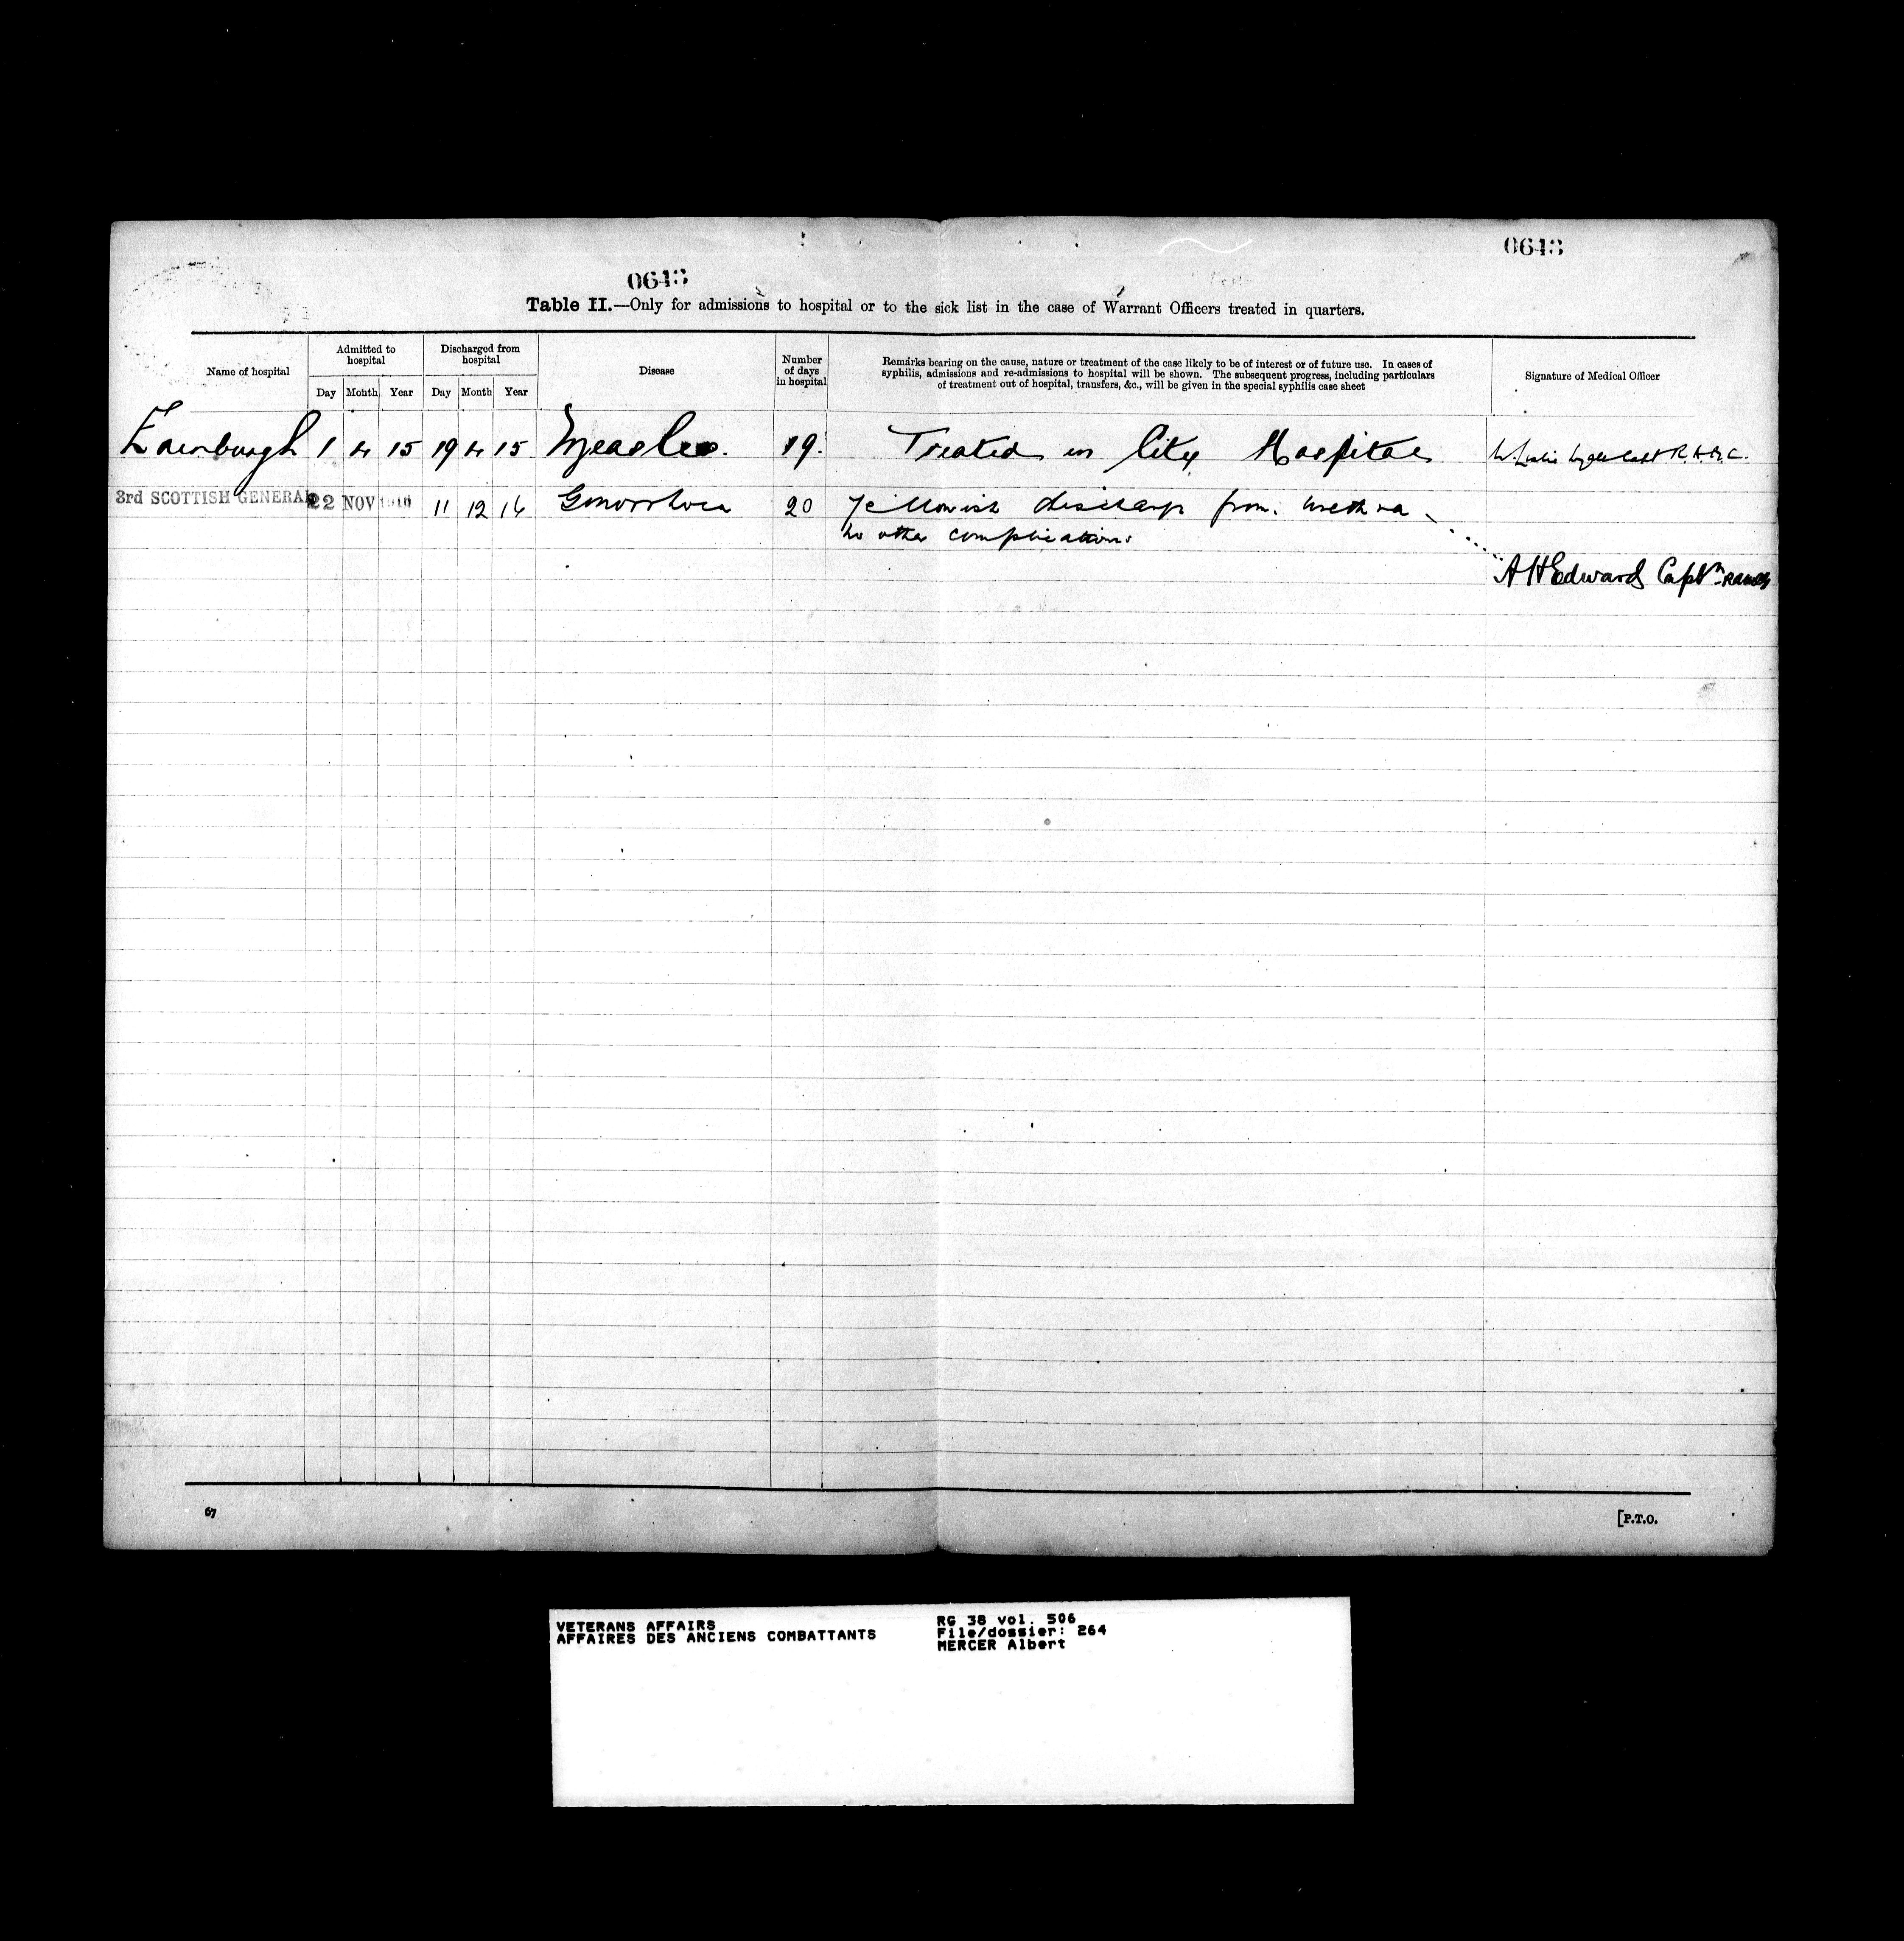 0643
0643
Table II.—Only for admissions to hospital or to the sick list in the case of Warrant Officers treated in quarters.
Name of hospital
Admitted to hospital
Discharged from hospital
Disease
Number of days in hospital
Remarks bearing on the cause, nature or treatment of the case likely to be of interest or of future use. In cases of
syphilis, admissions and re-admissions to hospital will be shown. The subsequent progress, including particulars
of treatment out of hospital, transfers, &c., will be given in the special syphilis case sheet
Signature of Medical Officer
Day Month Year Day Month Year
Edinburgh 1 4 15 19 4 15 Measles. 19. Treated in City Hospital Capt R.A.M.C.
3rd SCOTTISH GENERAL 22 NOV 1916 11 12 16 Gonorrhoea 20 Yellowish discharge from urethra
no other complications
A H Edward Captn RAMC
67
[P.T.O.
VETERANS AFFAIRS
AFFAIRES DES ANCIENS COMBATTANTS
RG 38 vol. 506
File/dossier: 264
MERCER Albert